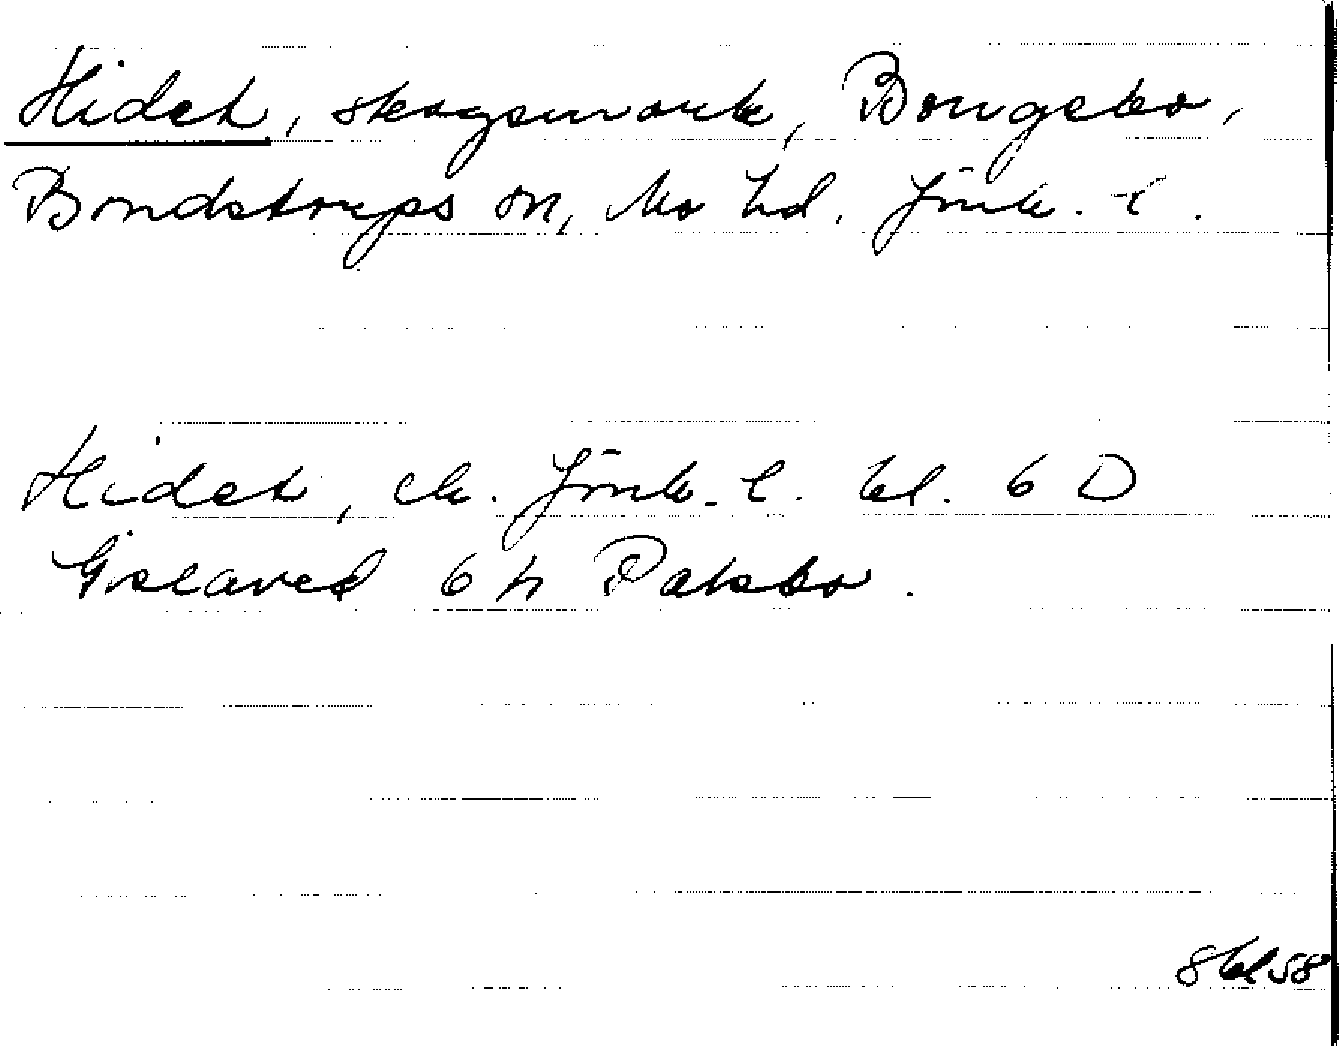 Hidet, skogsmark, Bongebo,
Bondstorps sn, Mo hd. Jönk. l.
Hidet, ek. Jönk. l. bl. 6 D
Gislaved 6 h Paksbo.
8 bl 58